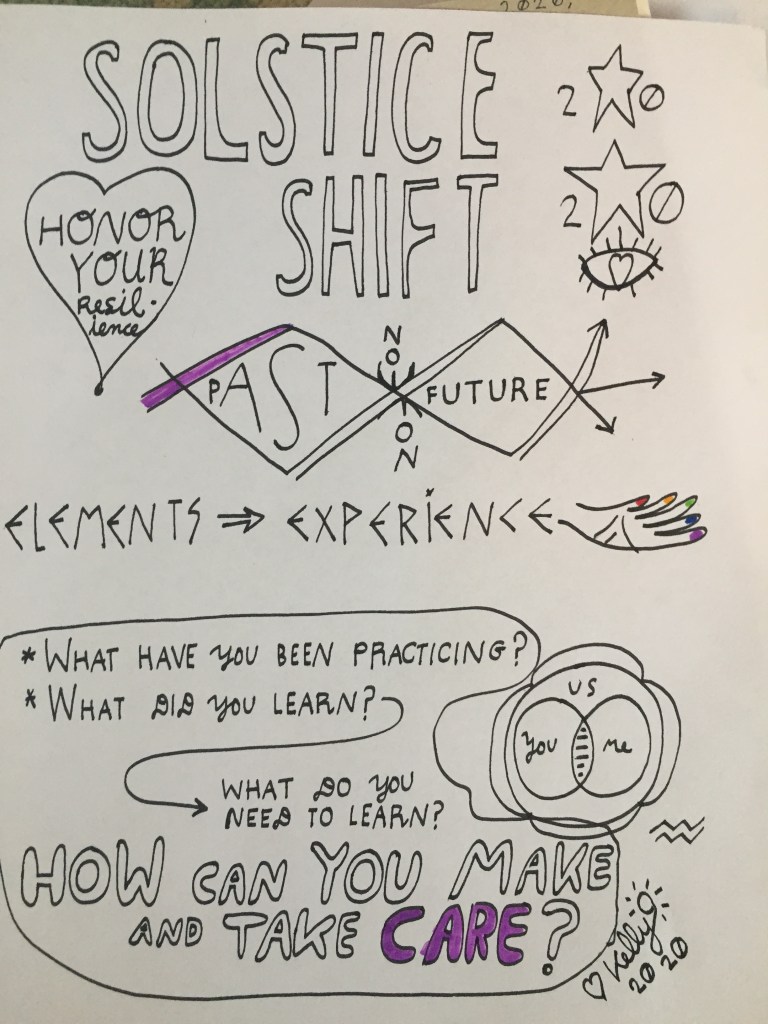 2020,
SOLSTICE
SHIFT
2 0
2 0
HONOR
YOUR
Resil-
ience
PAST
NOW
FUTURE
NOW
ELEMENTS ⇒ EXPERIENCE
* WHAT HAVE YOU BEEN PRACTICING?
* WHAT DID YOU LEARN?
WHAT DO YOU
NEED TO LEARN?
US
You
Me
HOW CAN YOU MAKE
AND TAKE CARE?
Kelly
2020